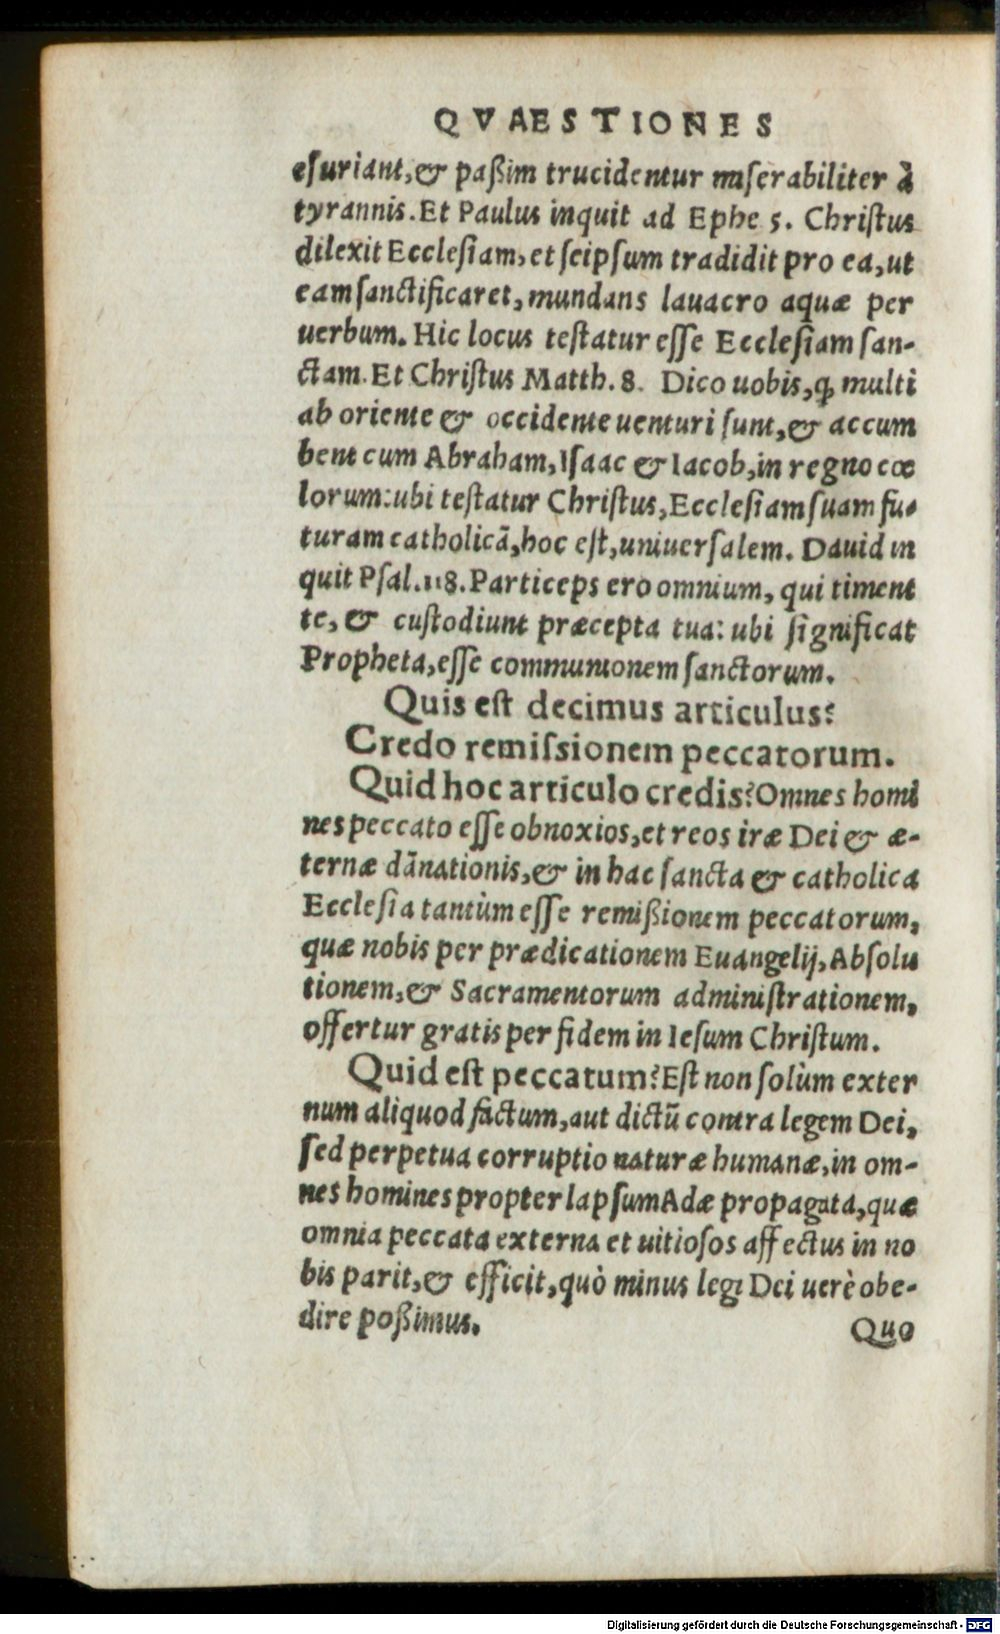 QVAESTIONES
esuriant, & paßim trucidentur miserabiliter à
tyrannis. Et Paulus inquit ad Ephe 5. Christus
dilexit Ecclesiam, et seipsum tradidit pro ea, ut
eam sanctificaret, mundans lauacro aquæ per
uerbum. Hic locus testatur esse Ecclesiam san-
ctam. Et Christus Matth. 8. Dico uobis, ꝙ multi
ab oriente & occidente uenturi sunt, & accum
bent cum Abraham, Isaac & Iacob, in regno cœ
lorum: ubi testatur Christus, Ecclesiam suam fu-
turam catholicã, hoc est, uniuersalem. Dauid in
quit Psal. 118. Particeps ero omnium, qui timent
te, & custodiunt præcepta tua: ubi significat
Propheta, esse communionem sanctorum.
Quis est decimus articulus?
Credo remissionem peccatorum.
Quid hoc articulo credis? Omnes homi
nes peccato esse obnoxios, et reos iræ Dei & æ-
ternæ dãnationis, & in hac sancta & catholica
Ecclesia tantùm esse remißionem peccatorum,
quæ nobis per prædicationem Euangelij, Absolu
tionem, & Sacramentorum administrationem,
offertur gratis per fidem in Iesum Christum.
Quid est peccatum? Est non solùm exter
num aliquod factum, aut dictũ contra legem Dei,
sed perpetua corruptio naturæ humanæ, in om-
nes homines propter lapsum Adæ propagata, quæ
omnia peccata externa et uitiosos affectus in no
bis parit, & efficit, quò minus legi Dei uerè obe-
dire poßimus.
Quo
Digitalisierung gefördert durch die Deutsche Forschungsgemeinschaft - DFG